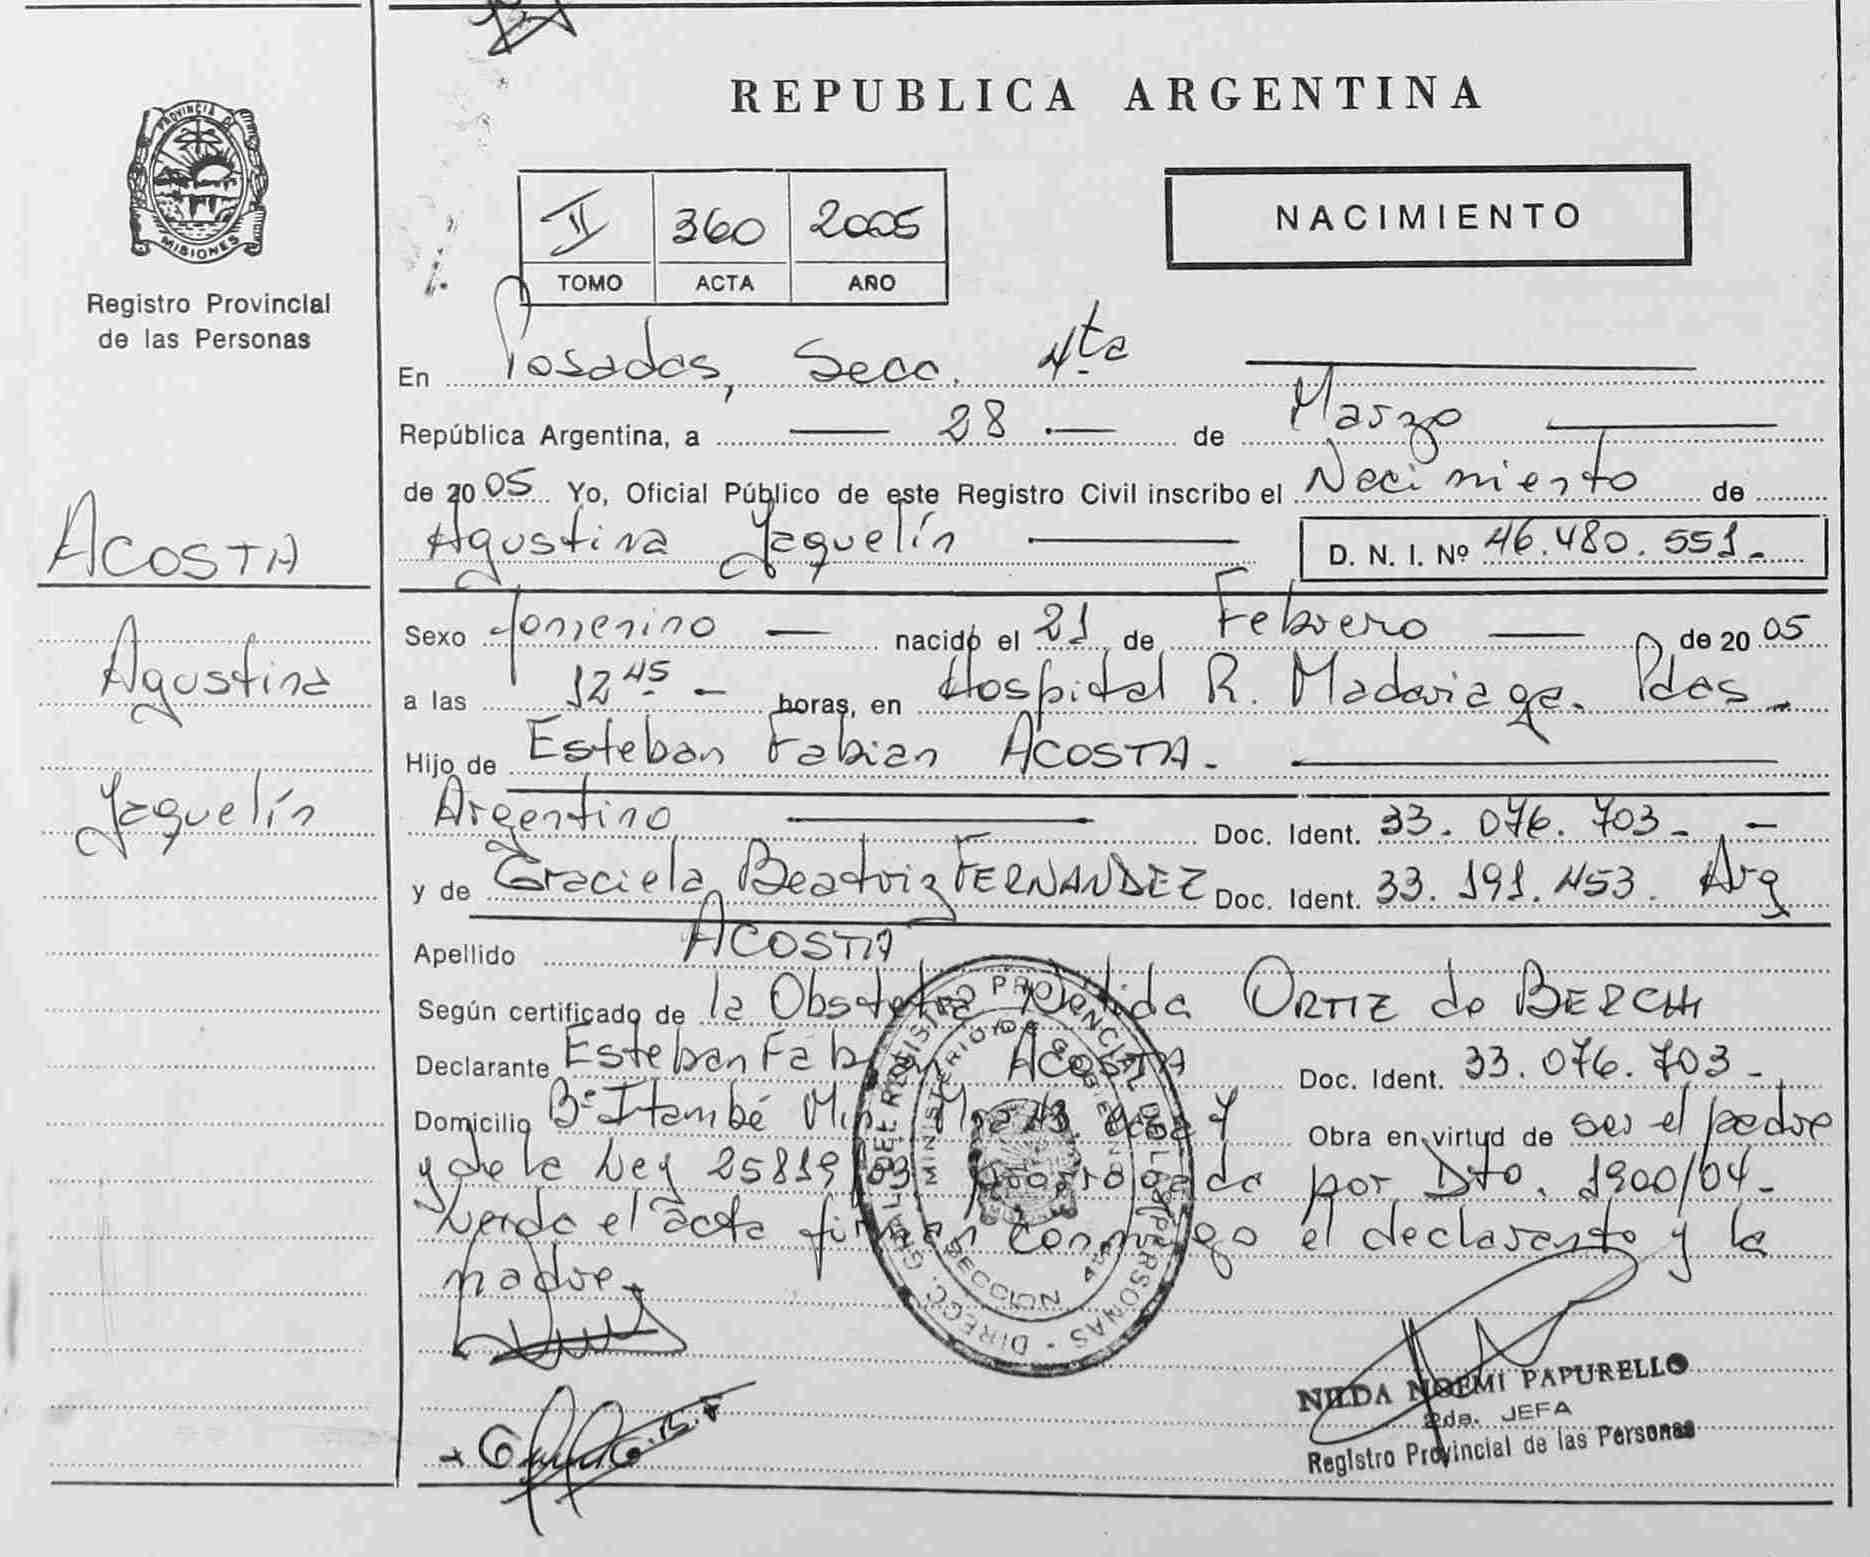 PROVINCIA DE
MISIONES
Registro Provincial
de las Personas
ACOSTA
Agustina
Jaquelín
REPUBLICA ARGENTINA
II 360 2005
TOMO ACTA AÑO
NACIMIENTO
En Posadas, Secc. 4ta
República Argentina, a 28 de Marzo
de 2005 Yo, Oficial Público de este Registro Civil inscribo el Nacimiento de
Agustina Jaquelín D. N. I. Nº 46.480.551.-
Sexo femenino nacido el 21 de Febrero de 2005
a las 12 45 horas, en Hospital R. Madariaga. Pdas
Hijo de Esteban Fabian ACOSTA.
Argentino Doc. Ident. 33.076.703-
y de Graciela Beatriz FERNANDEZ Doc. Ident. 33.191.453. Arg
Apellido ACOSTA
Según certificado de la Obstetra Nelida ORTIZ de BERCHI
Declarante Esteban Fabian ACOSTA Doc. Ident. 33.076.703-
Domicilio Bº Itambé Miní Obra en virtud de ser el padre
y de la Ley 25819/03 prorrogada por Dto. 1900/04-
Leída el acta firman conmigo el declarante y la
madre.
DIRECC. GRAL. DEL REGISTRO PROVINCIAL DE LAS PERSONAS
MINISTERIO DE GOBIERNO
SECCION 4ta
NILDA NOEMI PAPURELLO
2da. JEFA
Registro Provincial de las Personas